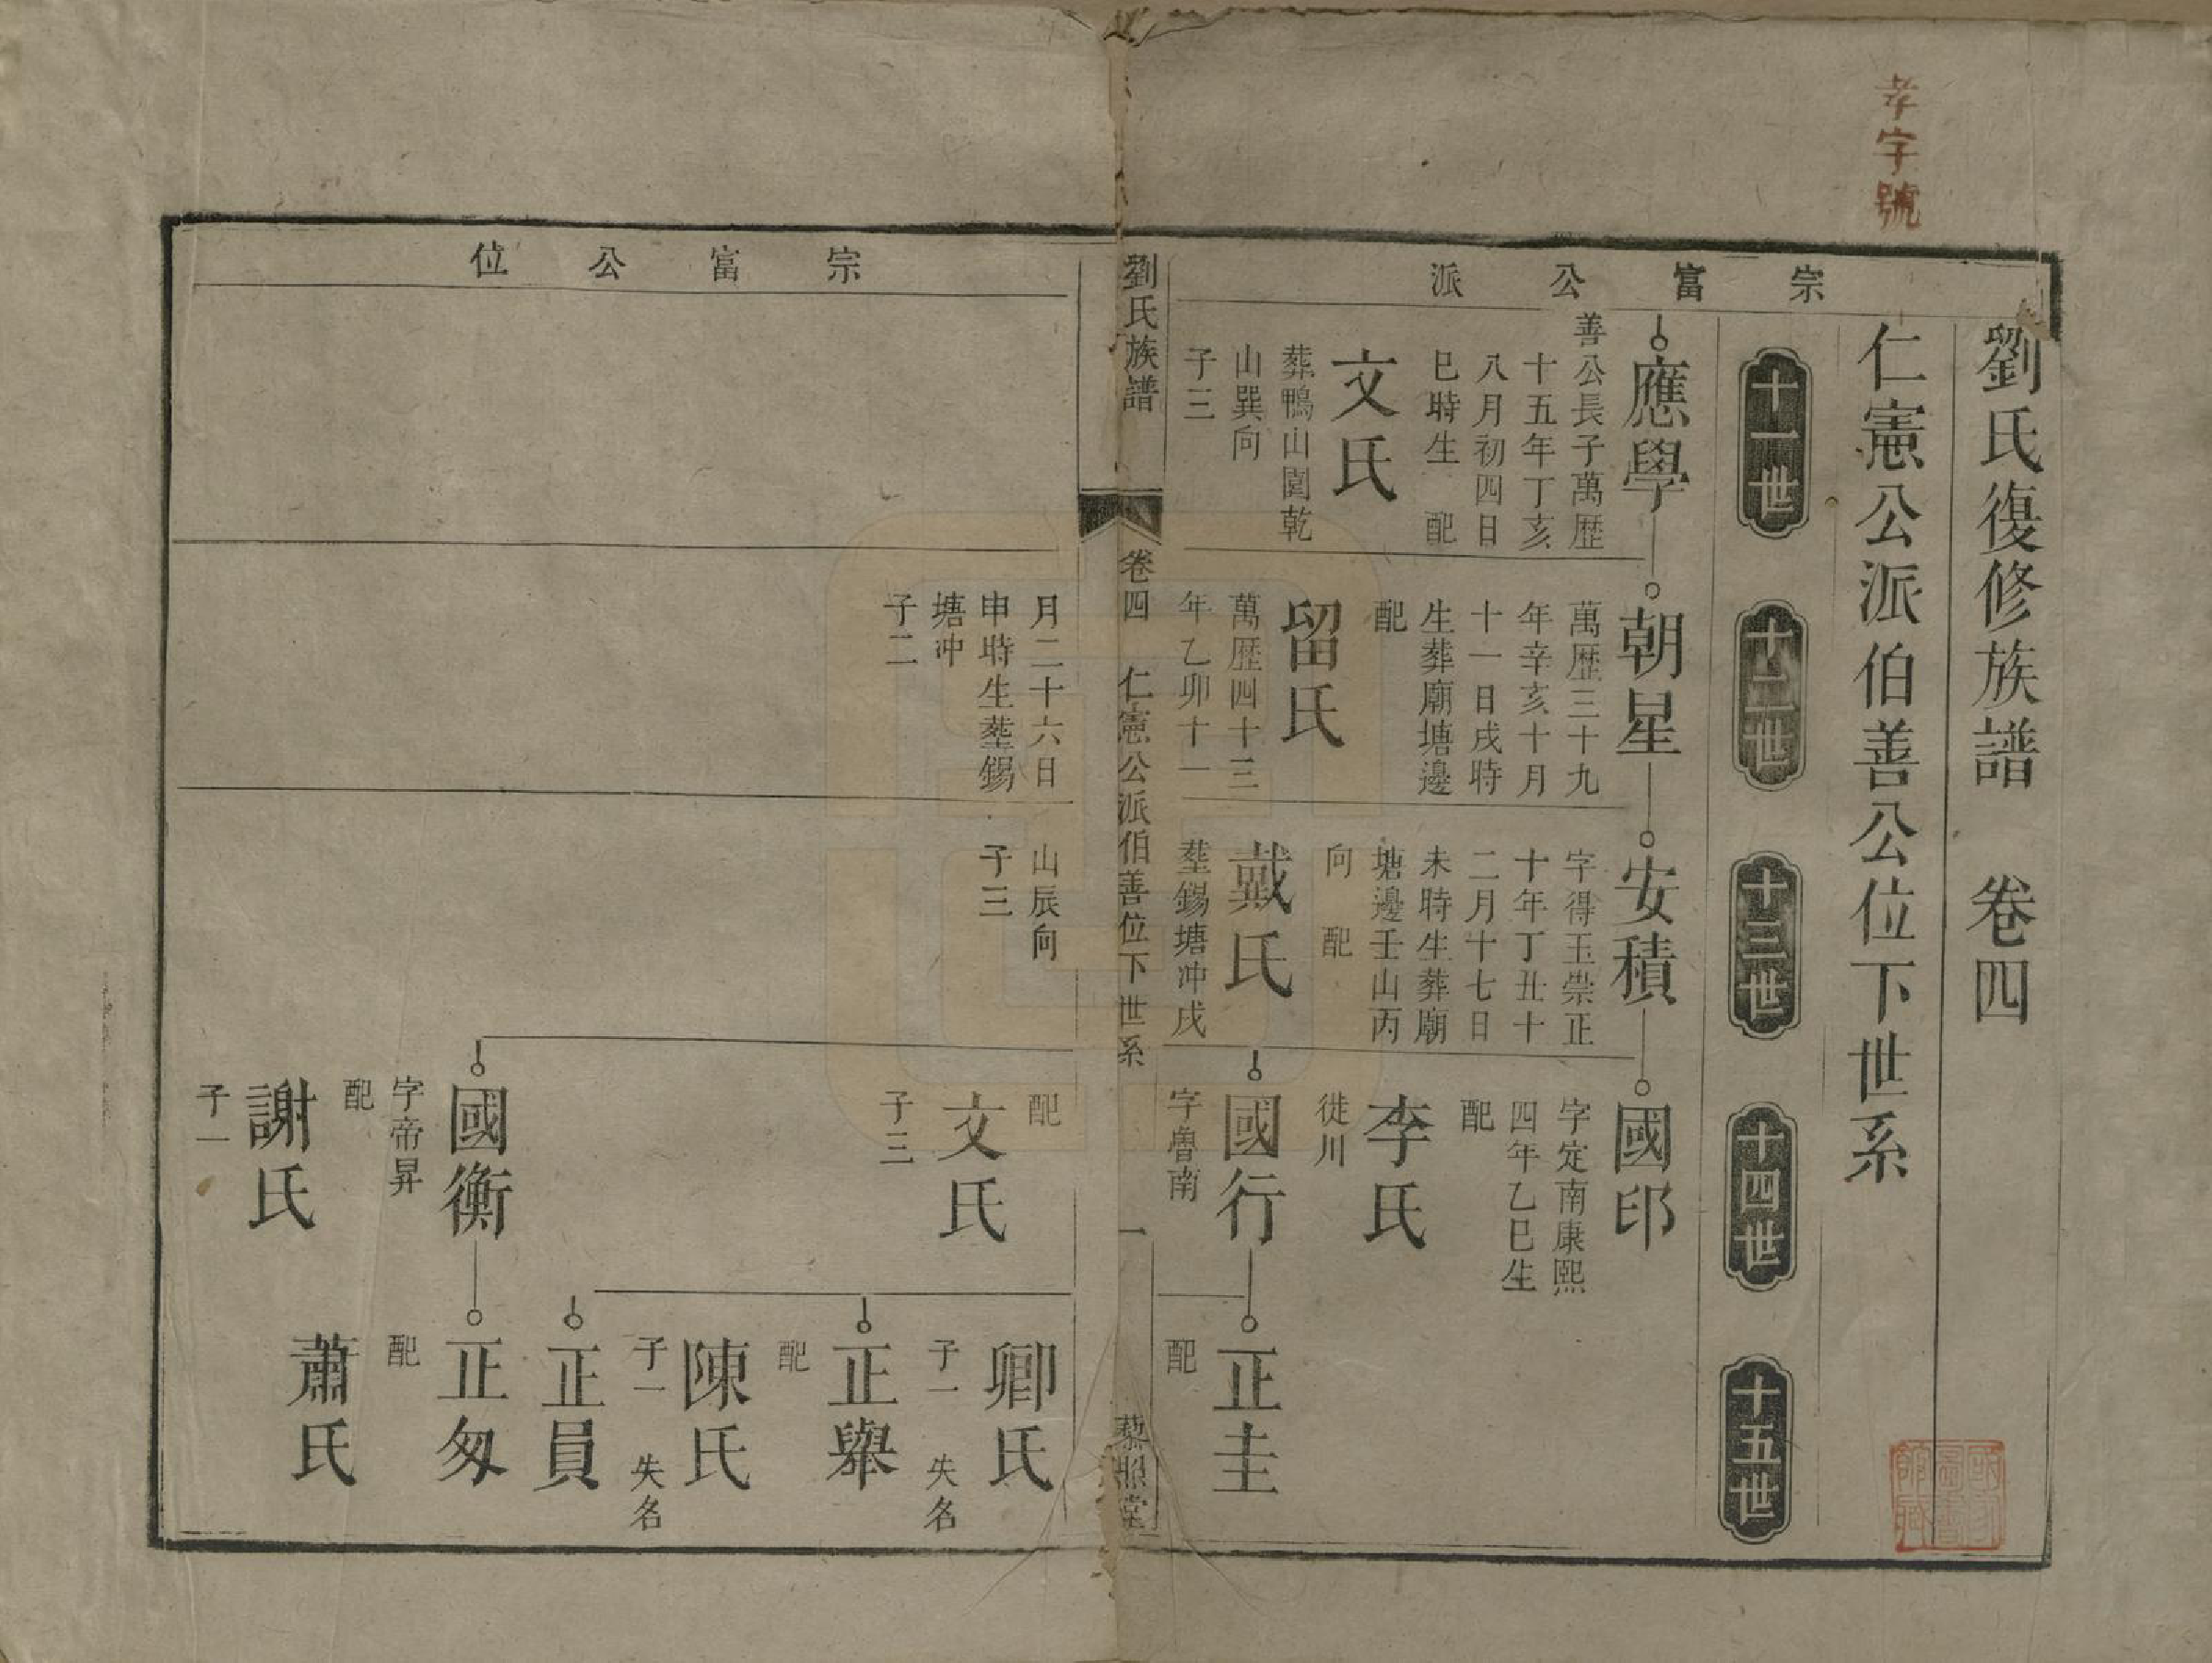 孝字號
劉氏復修族譜 卷四
仁憲公派伯善公位下世系
十一世
十二世
十三世
十四世
十五世
宗富公派
應學
善公長子萬歷
十五年丁亥
八月初四日
巳時生 配
文氏
葬鴨山園乾
山巽向
子三
朝星
萬歷三十九
年辛亥十月
十一日戌時
生葬廟塘邊
配
留氏
萬歷四十三
年乙卯十一
安積
字得玉崇正
十年丁丑十
二月十七日
未時生葬廟
塘邊壬山丙
向 配
戴氏
塟錫塘冲戌
國印
字定南康熙
四年乙巳生
配
李氏
徙川
國行
字魯南
正圭
配
劉氏族譜
卷四 仁憲公派伯善位下世系
一
藜照堂
宗富公位
月二十六日
申時生塟錫
塘冲
子二
山辰向
子三
配
文氏
子三
國衡
字帝昇
配
謝氏
子一
卿氏
子一 失名
正舉
配
陳氏
子一 失名
正員
正匆
配
蕭氏